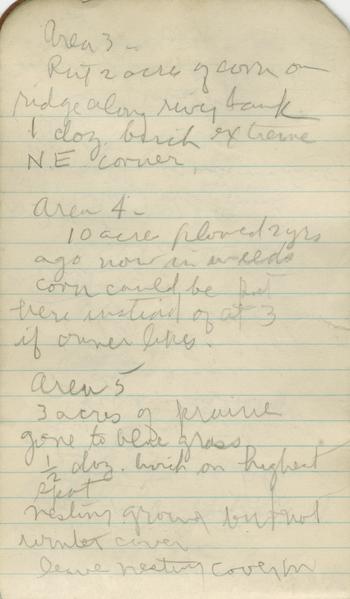 Area 3 -
Put 2 acres of corn on
ridge along river bank
1 doz. birch extreme
N.E. corner.
Area 4 -
10 acre plowed 2 yrs
ago now in weeds
corn could be put
here instead of at 3
if owner likes.
Area 5
3 acres of prairie
gone to blue grass
1/2 doz. birch on highest
spot
nesting ground but not
winter cover
leave nesting cover in